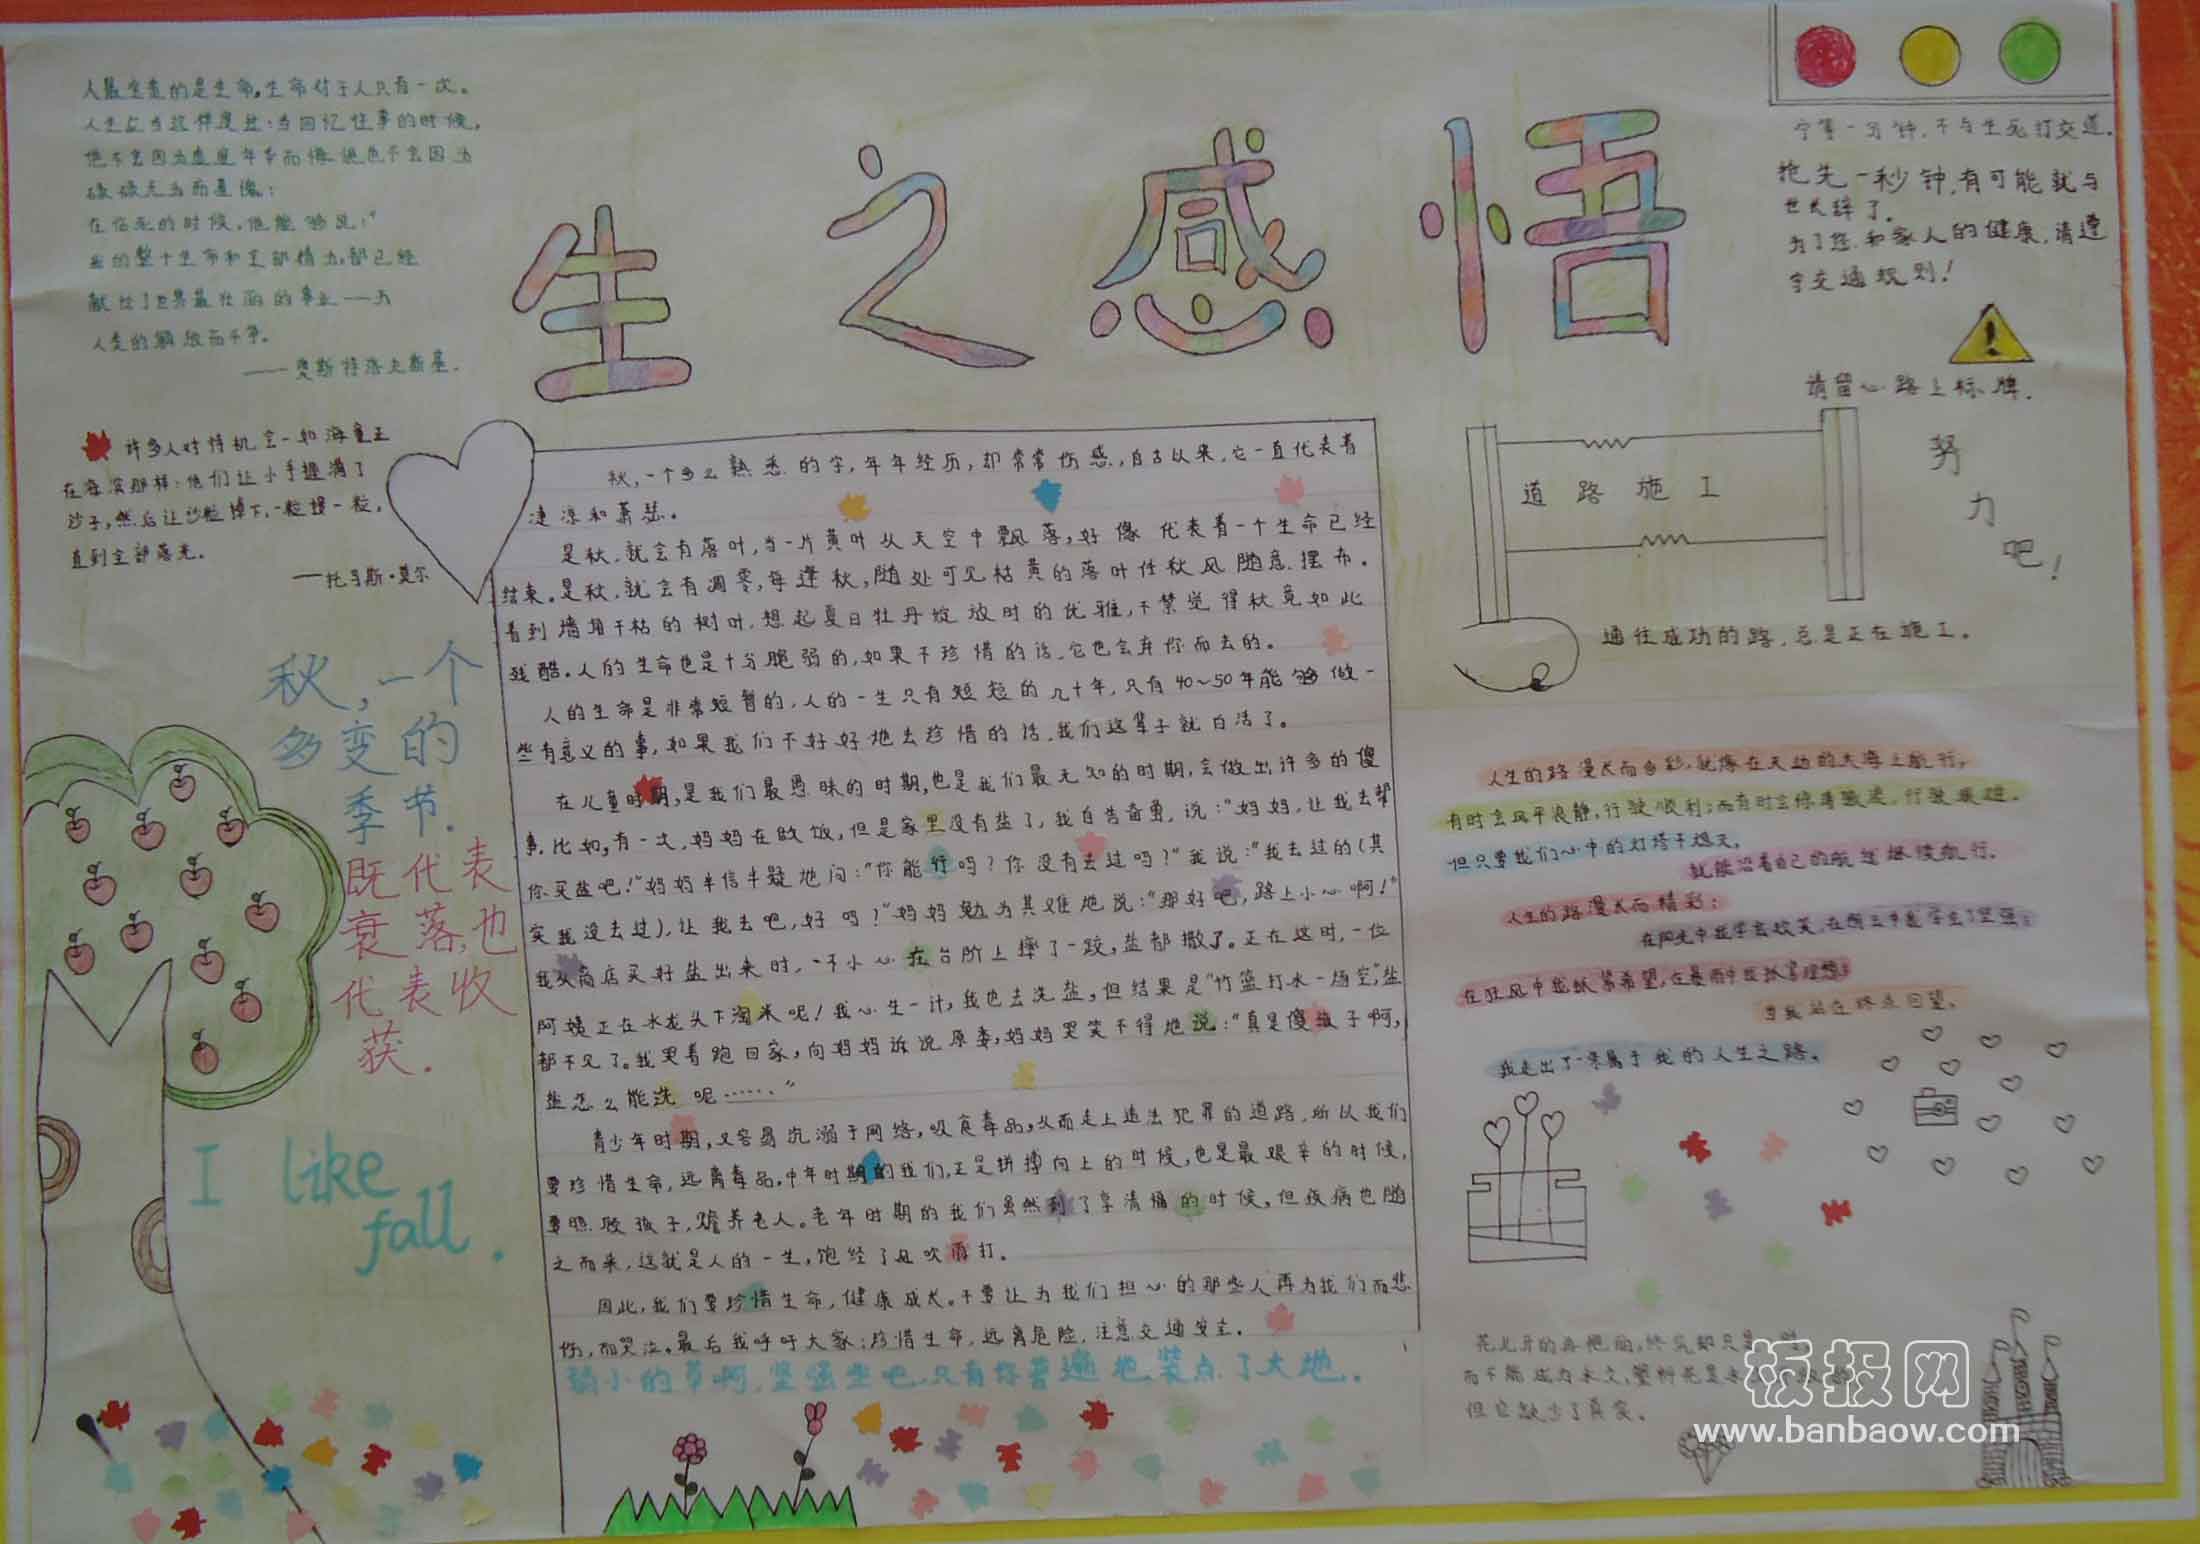 生之感悟
人最宝贵的是生命,生命对于人只有一次。
人生应当这样度过:当回忆往事的时候,
他不会因为虚度年华而悔恨也不会因为
碌碌无为而羞愧:
在临死的时候,他能够说:"
我的整个生命和全部精力,都已经
献给了世界最壮丽的事业——为
人类的解放而斗争。
——奥斯特洛夫斯基.
许多人对待机会一如海童
在海滨那样:他们让小手握满了
沙子,然后让沙粒掉下,一粒接一粒,
直到全部落光。
—托马斯·莫尔
秋,一个
多变的
季节.
既代表
衰落,也
代表收
获.
I like
fall.
秋,一个多么熟悉的字,年年经历,却常常伤感,自古以来,它一直代表着
凄凉和萧瑟。
是秋,就会有落叶,当一片黄叶从天空中飘落,好像代表着一个生命已经
结束。是秋,就会有凋零,每逢秋,随处可见枯黄的落叶任秋风随意摆布。
看到墙角干枯的树叶,想起夏日牡丹绽放时的优雅,不禁觉得秋竟如此
残酷。人的生命也是十分脆弱的,如果不珍惜的话,它也会弃你而去的。
人的生命是非常短暂的,人的一生只有短短的几十年,只有40~50年能够做一
些有意义的事,如果我们不好好地去珍惜的话,我们这辈子就白活了。
在儿童时期,是我们最愚昧的时期,也是我们最无知的时期,会做出许多的傻
事.比如,有一次,妈妈在做饭,但是家里没有盐了,我自告奋勇,说:"妈妈,让我去帮
你买盐吧!"妈妈半信半疑地问:"你能行吗?你没有去过吗?"我说:"我去过的(其
实我没去过),让我去吧,好吗?"妈妈勉为其难地说:"那好吧,路上小心啊!"
我从商店买好盐出来时,一不小心在台阶上摔了一跤,盐都撒了。正在这时,一位
阿姨正在水龙头下淘米呢!我心生一计,我也去洗盐,但结果是"竹篮打水一场空",盐
都不见了。我哭着跑回家,向妈妈诉说原委,妈妈哭笑不得地说:"真是傻孩子啊,
盐怎么能洗呢……"
青少年时期,又容易沉溺于网络,吸食毒品,从而走上违法犯罪的道路,所以我们
要珍惜生命,远离毒品。中年时期的我们,正是拼搏向上的时候,也是最艰辛的时候,
要照顾孩子,赡养老人。老年时期的我们虽然到了享清福的时候,但疾病也随
之而来,这就是人的一生,饱经了风吹雨打。
因此,我们要珍惜生命,健康成长。不要让为我们担心的那些人再为我们而悲
伤,而哭泣。最后我呼吁大家:珍惜生命,远离危险,注意交通安全.
弱小的草啊,坚强些吧.只有你普遍地装点了大地.
宁等一分钟,不与生死打交道.
抢先一秒钟,有可能就与
世长辞了.
为了您和家人的健康,请遵
守交通规则!
请留心路上标牌.
道路施工
努
力
吧!
通往成功的路,总是正在施工.
人生的路漫长而多彩,就像在天边的大海上航行,
有时会风平浪静,行驶顺利;而有时会,行驶艰难.
但只要我们心中的灯塔不熄灭,
就能沿着自己的航线继续航行.
人生的路漫长而精彩:
在阳光中我学会欢笑,在阴云中我学会了坚强;
在狂风中我抓紧希望,在暴雨中我抓紧理想;
当我站在终点回望,
我走出了一条属于我的人生之路.
但它缺少了真实。
板报网
www.banbaow.com